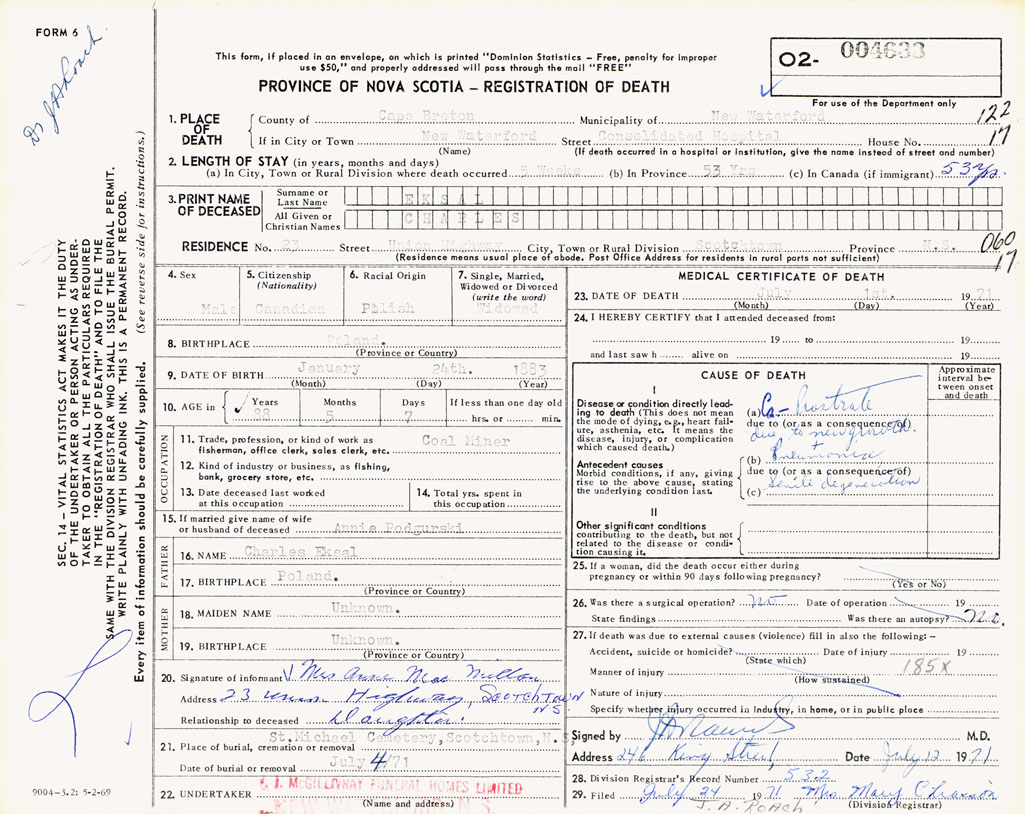 FORM 6
Dr J A Roach
SEC. 14 – VITAL STATISTICS ACT MAKES IT THE DUTY
OF THE UNDERTAKER OR PERSON ACTING AS UNDER-
TAKER TO OBTAIN ALL THE PARTICULARS REQUIRED
IN THE "REGISTRATION OF DEATH" AND TO FILE THE
SAME WITH THE DIVISION REGISTRAR WHO SHALL ISSUE THE BURIAL PERMIT.
WRITE PLAINLY WITH UNFADING INK. THIS IS A PERMANENT RECORD.
Every item of information should be carefully supplied. (See reverse side for instructions.)
This form, if placed in an envelope, on which is printed "Dominion Statistics – Free, penalty for improper
use $50," and properly addressed will pass through the mail "FREE"
PROVINCE OF NOVA SCOTIA – REGISTRATION OF DEATH
O2- 004633
For use of the Department only
122
17
1. PLACE OF DEATH
County of Cape Breton Municipality of New Waterford
If in City or Town New Waterford Street Consolidated Hospital House No.
(Name) (If death occurred in a hospital or institution, give the name instead of street and number)
2. LENGTH OF STAY (in years, months and days)
(a) In City, Town or Rural Division where death occurred 5 Weeks (b) In Province 53 Yrs (c) In Canada (if immigrant) 53 yrs.
3. PRINT NAME OF DECEASED
Surname or Last Name EKSAL
All Given or Christian Names CHARLES
RESIDENCE No. 23 Street Union Highway City, Town or Rural Division Scotchtown Province N.S.
(Residence means usual place of abode. Post Office Address for residents in rural parts not sufficient)
060
17
4. Sex
Male
5. Citizenship
(Nationality)
Canadian
6. Racial Origin
Polish
7. Single, Married,
Widowed or Divorced
(write the word)
Widowed
8. BIRTHPLACE Poland.
(Province or Country)
9. DATE OF BIRTH January 24th. 1883
(Month) (Day) (Year)
10. AGE in Years Months Days If less than one day old
88 5 7 hrs. or min.
OCCUPATION
11. Trade, profession, or kind of work as
fisherman, office clerk, sales clerk, etc. Coal Miner
12. Kind of industry or business, as fishing,
bank, grocery store, etc.
13. Date deceased last worked
at this occupation
14. Total yrs. spent in
this occupation
15. If married give name of wife
or husband of deceased Annie Podgurski
FATHER
16. NAME Charles Eksal
17. BIRTHPLACE Poland.
(Province or Country)
MOTHER
18. MAIDEN NAME Unknown.
19. BIRTHPLACE Unknown.
(Province or Country)
20. Signature of informant Mrs Anne Mac Millan
Address 23 Union Highway, Scotchtown N.S
Relationship to deceased Daughter.
21. Place of burial, cremation or removal St.Michael Cemetery, Scotchtown, N.S
Date of burial or removal July 4/71
22. UNDERTAKER McGILLIVRAY FUNERAL HOMES LIMITED
(Name and address) NEW WATERFORD, N.S.
9004-3.2: 5-2-69
MEDICAL CERTIFICATE OF DEATH
23. DATE OF DEATH July 1st. 1971
(Month) (Day) (Year)
24. I HEREBY CERTIFY that I attended deceased from:
19 to 19
and last saw h alive on 19
CAUSE OF DEATH
Approximate interval between onset and death
I
Disease or condition directly lead-
ing to death (This does not mean
the mode of dying, e.g., heart fail-
ure, asthenia, etc. It means the
disease, injury, or complication
which caused death.)
(a) Ca – Prostrate
due to (or as a consequence of)
due to new growth.
+
(b) Pneumonia
Antecedent causes
Morbid conditions, if any, giving
rise to the above cause, stating
the underlying condition last.
due to (or as a consequence of)
(c) Senile degeneration
II
Other significant conditions
contributing to the death, but not
related to the disease or condi-
tion causing it.
25. If a woman, did the death occur either during
pregnancy or within 90 days following pregnancy?
(Yes or No)
26. Was there a surgical operation? no Date of operation 19
State findings Was there an autopsy? no.
27. If death was due to external causes (violence) fill in also the following:–
Accident, suicide or homicide? Date of injury 19
(State which)
Manner of injury 185X
(How sustained)
Nature of injury
Specify whether injury occurred in industry, in home, or in public place
Signed by J A Roach M.D.
Address 246 King Street, Date July 12 1971
28. Division Registrar's Record Number 532
29. Filed July 24 1971 Mrs Mary Chiasson
(Division Registrar)
J. A. ROACH